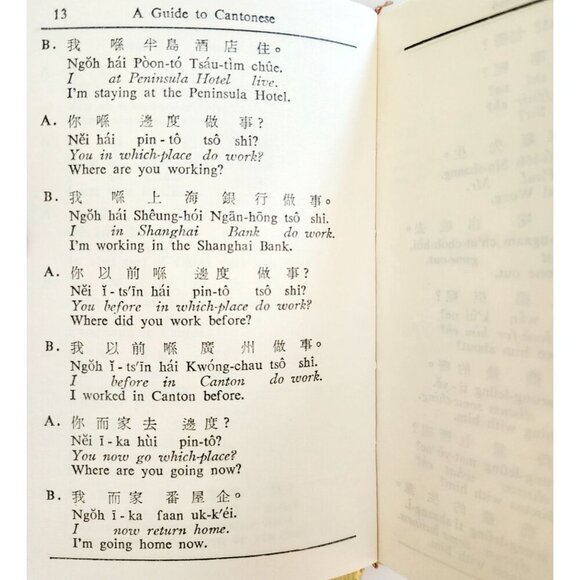 13 A Guide to Cantonese
B. 我 喺 半島 酒店 住。
Ngŏh hái Pòon-tó Tsáu-tìm chûe.
I at Peninsula Hotel live.
I'm staying at the Peninsula Hotel.
A. 你喺 邊度 做事?
Nĕi hái pin-tô tsô shî?
You in which-place do work?
Where are you working?
B. 我 喺 上海 銀行 做事。
Ngŏh hái Shêung-hói Ngān-hōng tsô shî.
I in Shanghai Bank do work.
I'm working in the Shanghai Bank.
A. 你以前喺 邊度 做事?
Nĕi ĭ-ts'īn hái pin-tô tsô shî?
You before in which-place do work?
Where did you work before?
B. 我 以前 喺 廣州 做事。
Ngŏh ĭ-ts'īn hái Kwóng-chau tsô shî.
I before in Canton do work.
I worked in Canton before.
A. 你而家去 邊度?
Nĕi ī-ka hùi pin-tô?
You now go which-place?
Where are you going now?
B. 我 而家 番屋企。
Ngŏh ī-ka faan uk-k'éi.
I now return home.
I'm going home now.